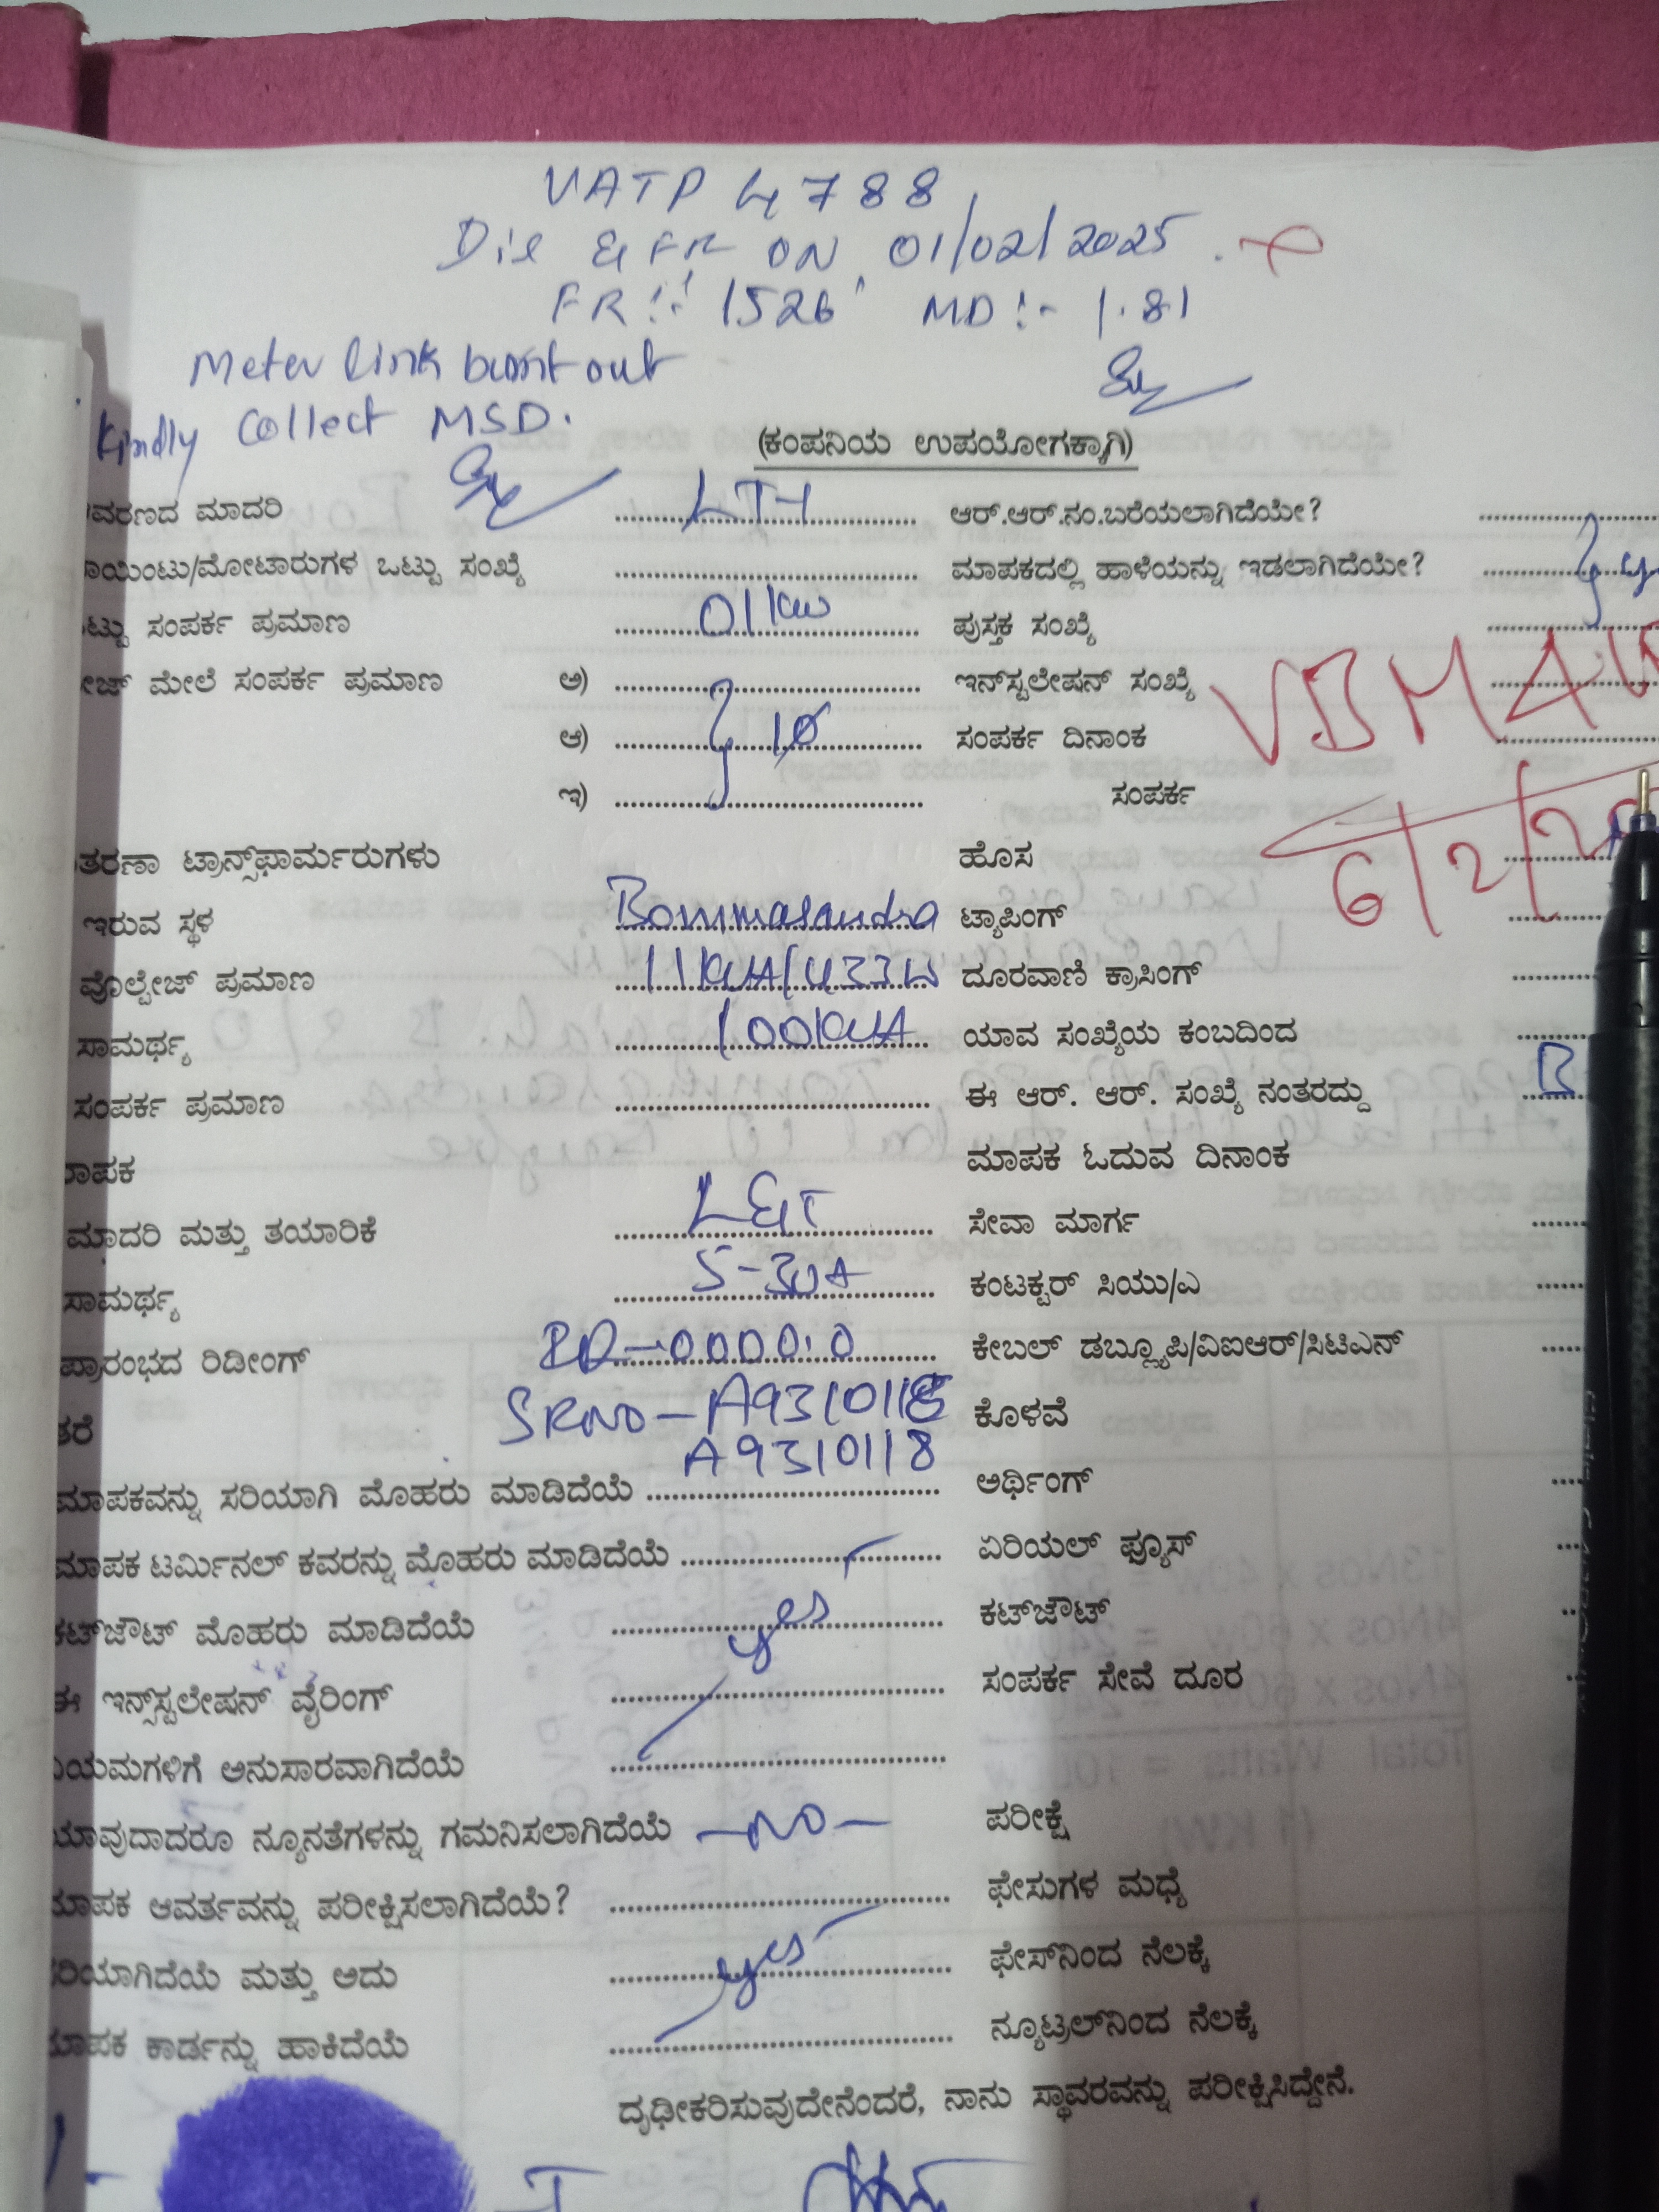 VATP 4788
Dis & FR ON 01/02/2025
FR:- 1526 MD:- 1.81
Meter link burnt out
Kindly Collect MSD.
(ಕಂಪನಿಯ ಉಪಯೋಗಕ್ಕಾಗಿ)
ಮಾದರಿ ಆರ್.ಆರ್.ನಂ.ಬರೆಯಲಾಗಿದೆಯೇ?
ಒಟ್ಟು ಸಂಖ್ಯೆ ಮಾಪಕದಲ್ಲಿ ಹಾಳೆಯನ್ನು ಇಡಲಾಗಿದೆಯೇ?
ಸಂಪರ್ಕ ಪ್ರಮಾಣ 01 kw ಪುಸ್ತಕ ಸಂಖ್ಯೆ
ಮೇಲೆ ಸಂಪರ್ಕ ಪ್ರಮಾಣ ಅ) ಇನ್‌ಸ್ಟಲೇಷನ್ ಸಂಖ್ಯೆ
ಆ) 1Ø ಸಂಪರ್ಕ ದಿನಾಂಕ
ಇ) ಸಂಪರ್ಕ
6/2/
ಟ್ರಾನ್ಸ್‌ಫಾರ್ಮರುಗಳು ಹೊಸ
ಇರುವ ಸ್ಥಳ Bommasandra ಟ್ಯಾಪಿಂಗ್
ವೊಲ್ಟೇಜ್ ಪ್ರಮಾಣ ದೂರವಾಣಿ ಕ್ರಾಸಿಂಗ್
ಸಾಮರ್ಥ್ಯ 100KVA ಯಾವ ಸಂಖ್ಯೆಯ ಕಂಬದಿಂದ
ಸಂಪರ್ಕ ಪ್ರಮಾಣ ಈ ಆರ್. ಆರ್. ಸಂಖ್ಯೆ ನಂತರದ್ದು B
ಮಾಪಕ ಓದುವ ದಿನಾಂಕ
ಮಾದರಿ ಮತ್ತು ತಯಾರಿಕೆ L&T ಸೇವಾ ಮಾರ್ಗ
ಸಾಮರ್ಥ್ಯ 5-30A ಕಂಟಕ್ಟರ್ ಸಿಯು/ಎ
ಪ್ರಾರಂಭದ ರಿಡೀಂಗ್ 0000.0 ಕೇಬಲ್ ಡಬ್ಲ್ಯೂಪಿ/ವಿಐಆರ್/ಸಿಟಿಎನ್
SRNO - A9310118 ಕೊಳವೆ
A9310118
ಮಾಪಕವನ್ನು ಸರಿಯಾಗಿ ಮೊಹರು ಮಾಡಿದೆಯೆ ಅರ್ಥಿಂಗ್
ಮಾಪಕ ಟರ್ಮಿನಲ್ ಕವರನ್ನು ಮೊಹರು ಮಾಡಿದೆಯೆ ಏರಿಯಲ್ ಫ್ಯೂಸ್
ಕಟ್‌ಜೌಟ್ ಮೊಹರು ಮಾಡಿದೆಯೆ yes ಕಟ್‌ಜೌಟ್
ಈ ಇನ್ಸ್‌ಸ್ಟಲೇಷನ್ ವೈರಿಂಗ್ ಸಂಪರ್ಕ ಸೇವೆ ದೂರ
ಅನುಸಾರವಾಗಿದೆಯೆ
ನ್ಯೂನತೆಗಳನ್ನು ಗಮನಿಸಲಾಗಿದೆಯೆ - NO - ಪರೀಕ್ಷೆ
ಆವರ್ತವನ್ನು ಪರೀಕ್ಷಿಸಲಾಗಿದೆಯೆ? ಫೇಸುಗಳ ಮಧ್ಯೆ
ಮತ್ತು ಅದು yes ಫೇಸ್‌ನಿಂದ ನೆಲಕ್ಕೆ
ಕಾರ್ಡನ್ನು ಹಾಕಿದೆಯೆ ನ್ಯೂಟ್ರಲ್‌ನಿಂದ ನೆಲಕ್ಕೆ
ದೃಢೀಕರಿಸುವುದೇನೆಂದರೆ, ನಾನು ಸ್ಥಾವರವನ್ನು ಪರೀಕ್ಷಿಸಿದ್ದೇನೆ.